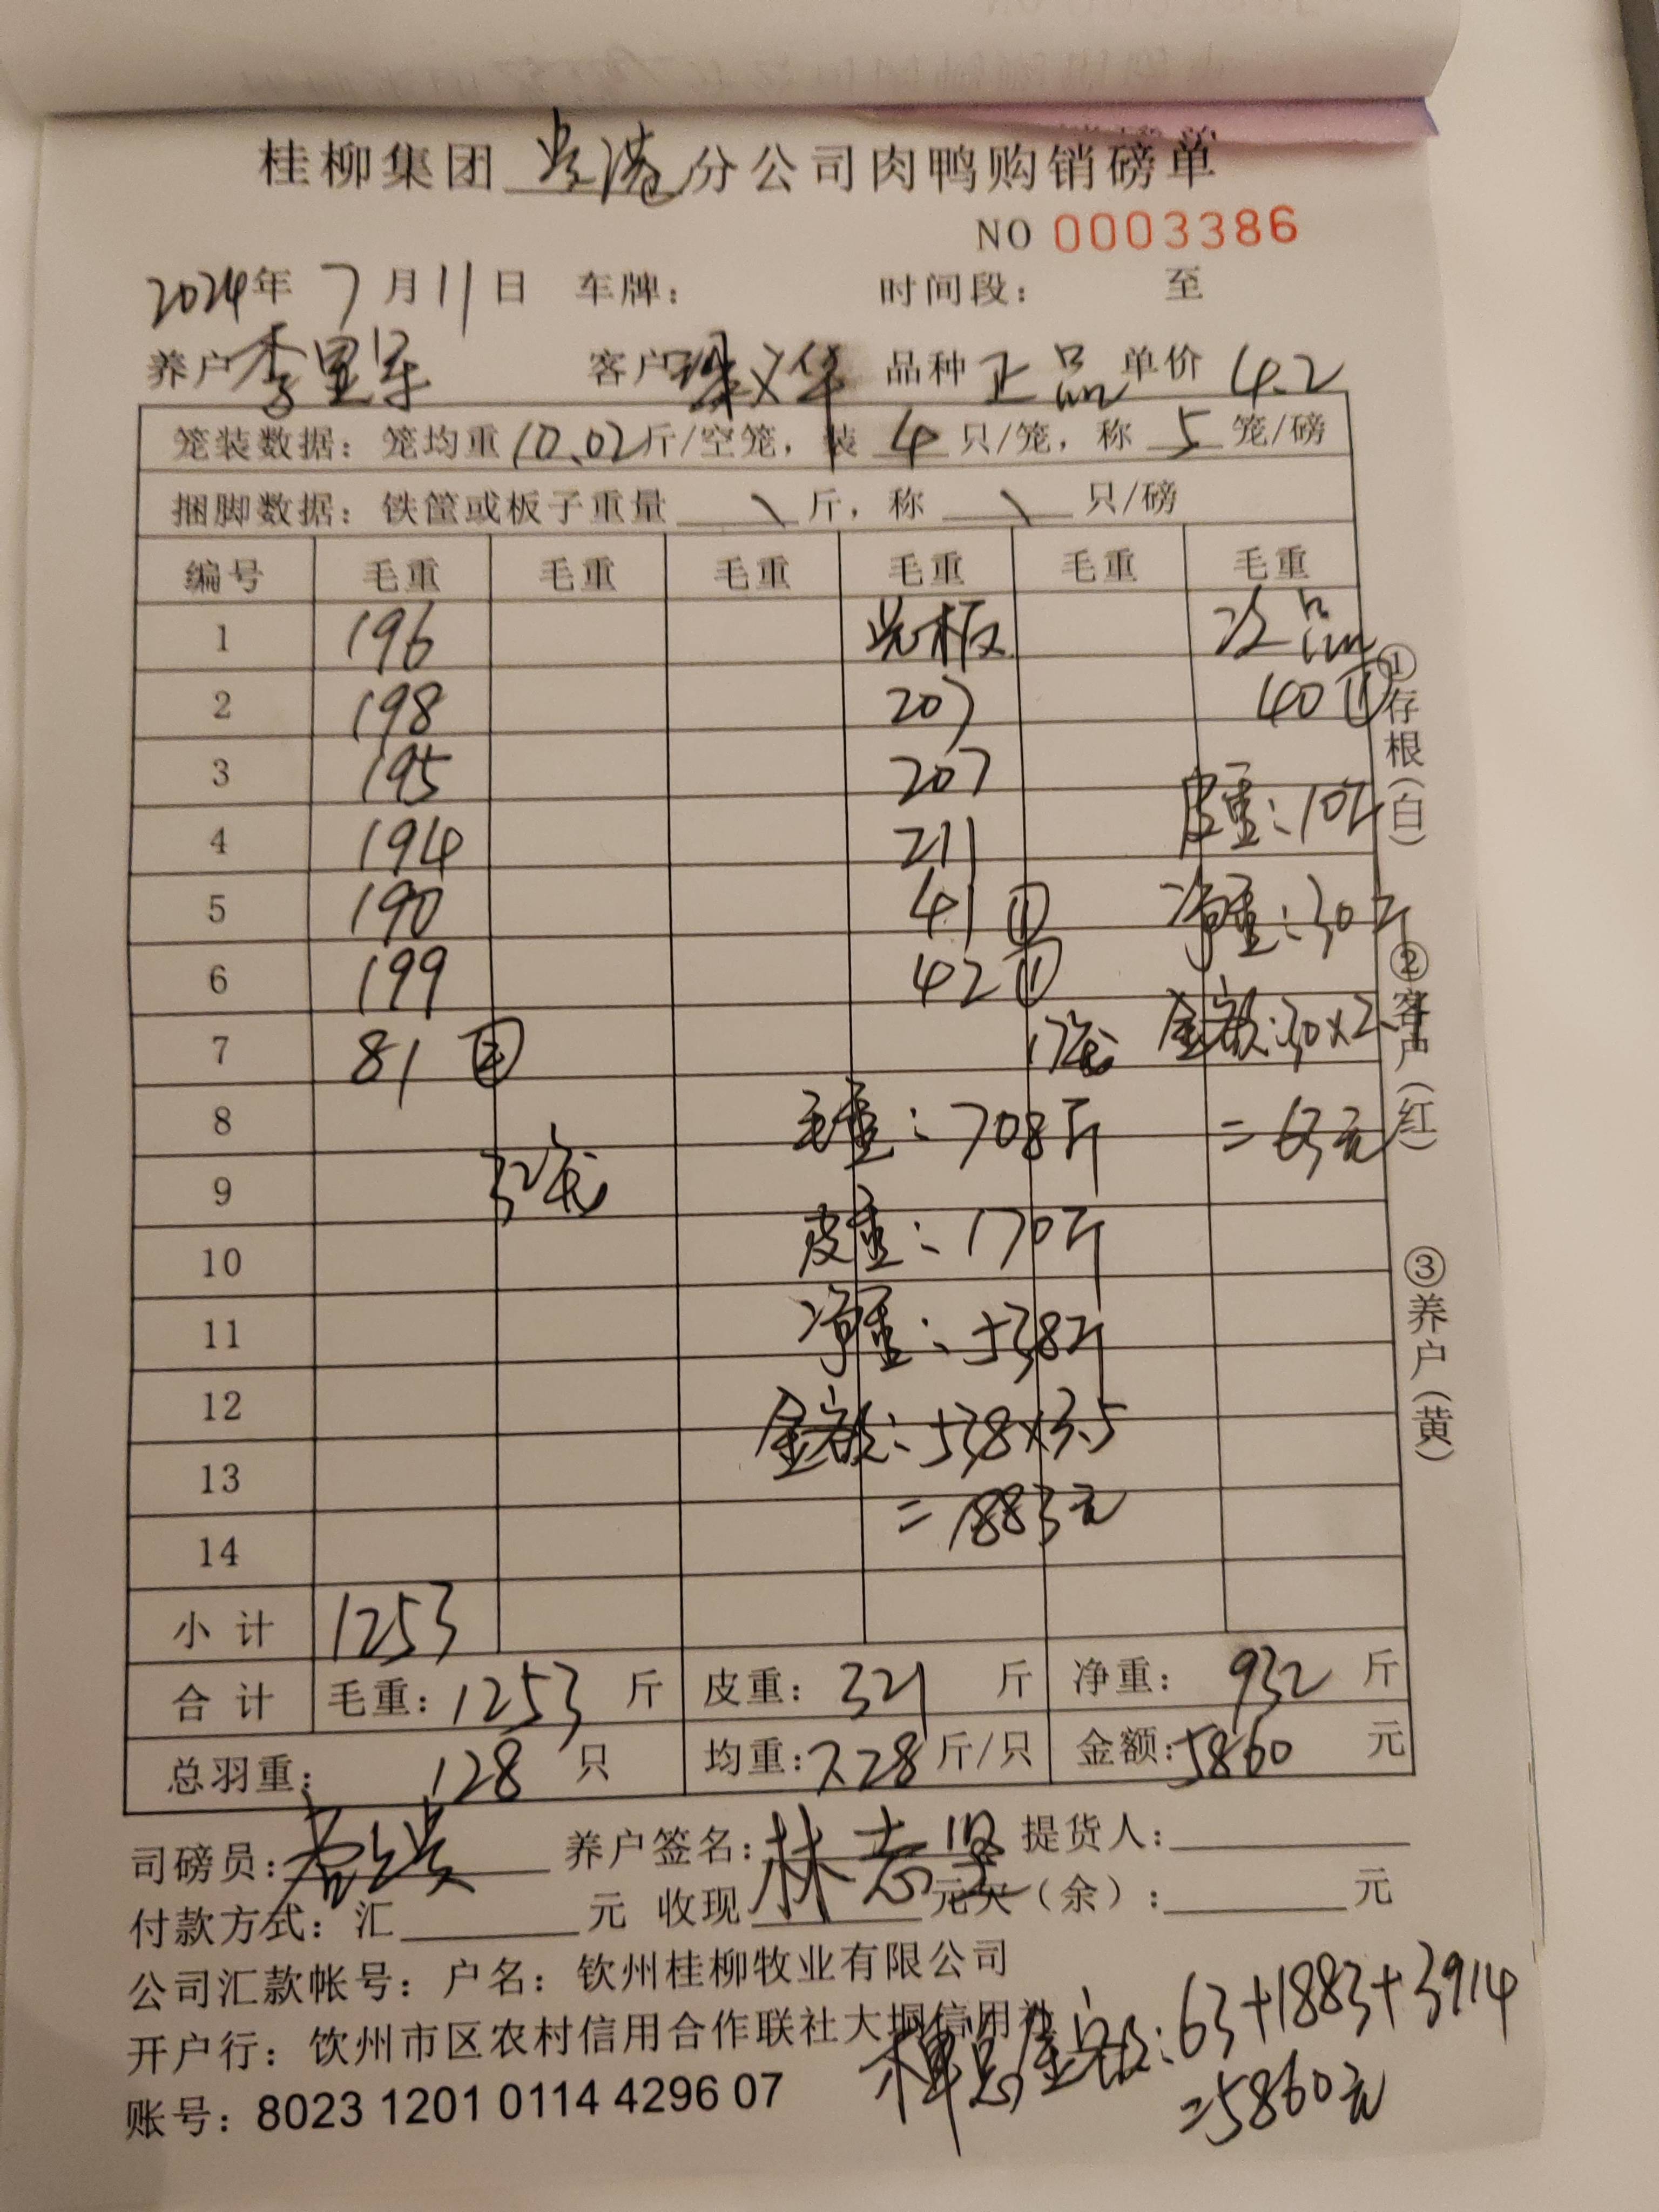 桂柳集团 贵港 分公司肉鸭购销磅单
NO 0003386
2024年 7月11日 车牌： 时间段： 至
养户 李 客户 华 品种 正品 单价 4.2
笼装数据：笼均重10.02斤/空笼，装 4 只/笼，称 5 笼/磅
捆脚数据：铁筐或板子重量 \ 斤，称 \ 只/磅
编号 毛重 毛重 毛重 毛重 毛重 毛重
1 196 光板 次品
2 198 207 40 ①
3 195 207 皮重：10斤
4 194 211
5 190 41 ① 净重：30斤
6 199 42 ①
7 81 ② 17笼 金额：30×2.1
8 毛重：708斤 =63元
9 32笼
10 皮重：170斤
11 净重：538斤
12 金额：538×3.5
13 =1883元
14
小计 1253
合计 毛重：1253 斤 皮重：321 斤 净重：932 斤
总羽重： 128 只 均重：7.28 斤/只 金额：5860 元
司磅员： 养户签名：林志坚 提货人：
付款方式：汇 元 收现 元欠（余）： 元
公司汇款帐号：户名：钦州桂柳牧业有限公司
开户行：钦州市区农村信用合作联社大垌信用社
账号：8023 1201 0114 4296 07
本单总金额：63+1883+3914
=5860元
①存根（白）
②客户（红）
③养户（黄）